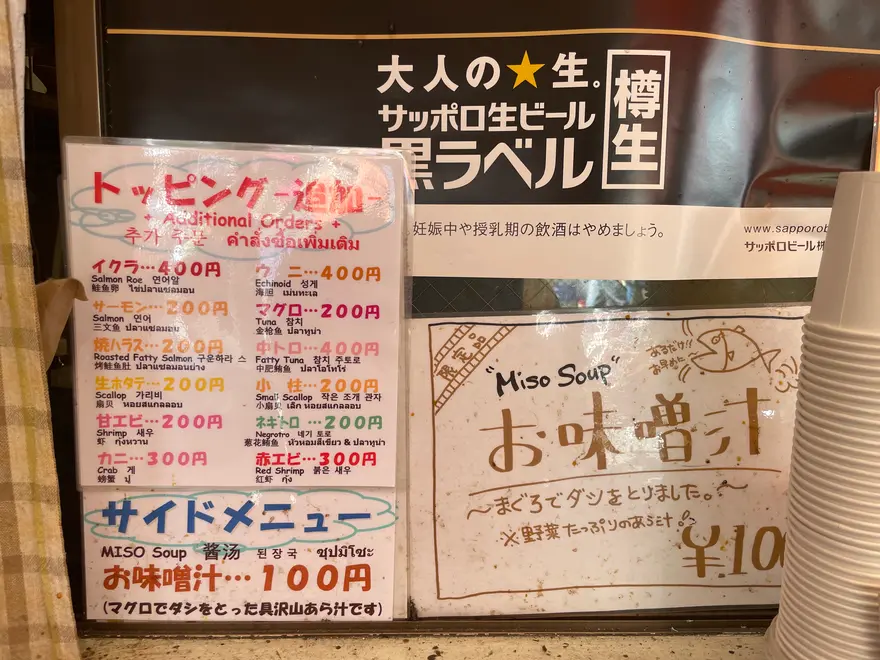 大人の★生。
サッポロ生ビール
黒ラベル
樽生
妊娠中や授乳期の飲酒はやめましょう。
www.sapporob
サッポロビール株
トッピング-追加-
+ Additional Orders +
추가 주문 คำสั่งซื้อเพิ่มเติม
イクラ…400円
Salmon Roe 연어알
鮭鱼卵 ไข่ปลาแซลมอน
サーモン…200円
Salmon 연어
三文鱼 ปลาแซลมอน
焼ハラス…200円
Roasted Fatty Salmon 구운하라 스
烤鲑鱼肚 ปลาแซลมอนย่าง
生ホタテ…200円
Scallop 가리비
扇贝 หอยสแกลลอบ
甘エビ…200円
Shrimp 새우
虾 กุ้งหวาน
カニ…300円
Crab 게
螃蟹 ปู
ウニ…400円
Echinoid 성게
海胆 เม่นทะเล
マグロ…200円
Tuna 참치
金枪鱼 ปลาทูน่า
中トロ…400円
Fatty Tuna 참치 주토로
中肥鲔鱼 ปลาโอโทโร่
小柱…200円
Small Scallop 작은 조개 관자
小扇贝 เล็ก หอยสแกลลอบ
ネギトロ…200円
Negrotro 네기 토로
葱花鲔鱼 หัวหอมสีเขียว & ปลาทูน่า
赤エビ…300円
Red Shrimp 붉은 새우
红虾 กุ้ง
サイドメニュー
MISO Soup 酱汤 된장국 ซุปมิโซะ
お味噌汁…100円
(マグロでダシをとった具沢山あら汁です)
限定品
あるだけ!!
お早めに
"Miso Soup"
お味噌汁
〜まぐろでダシをとりました。〜
※野菜たっぷりのあら汁
¥.100